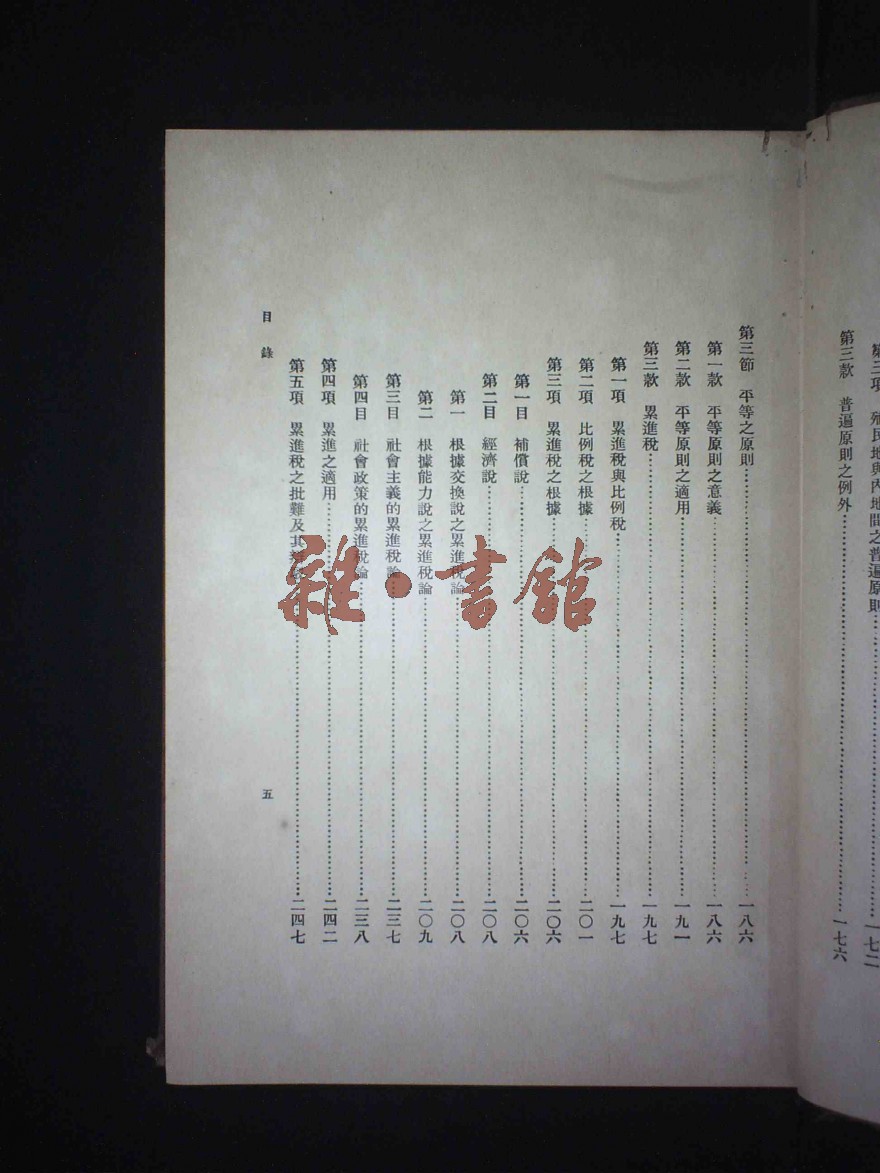 第三項　殖民地與內地間之普遍原則……一七二
第三款　普遍原則之例外……一七六
第三節　平等之原則……一八六
第一款　平等原則之意義……一八六
第二款　平等原則之適用……一九一
第三款　累進稅……一九七
第一項　累進稅與比例稅……一九七
第二項　比例稅之根據……二〇一
第三項　累進稅之根據……二〇六
第一目　補償說……二〇六
第二目　經濟說……二〇八
第一　根據交換說之累進稅論……二〇八
第二　根據能力說之累進稅論……二〇九
第三目　社會主義的累進稅論……二三七
第四目　社會政策的累進稅論……二三八
第四項　累進之適用……二四二
第五項　累進稅之批難及其……二四七
目錄
五
雜・書館